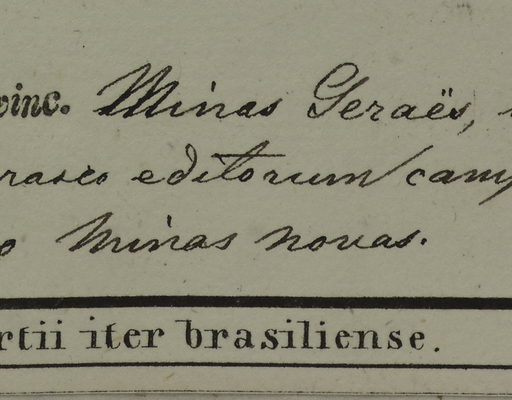 vinc. Minas Geraës,
editorum camp
o Minas novas.
rtii iter brasiliense.